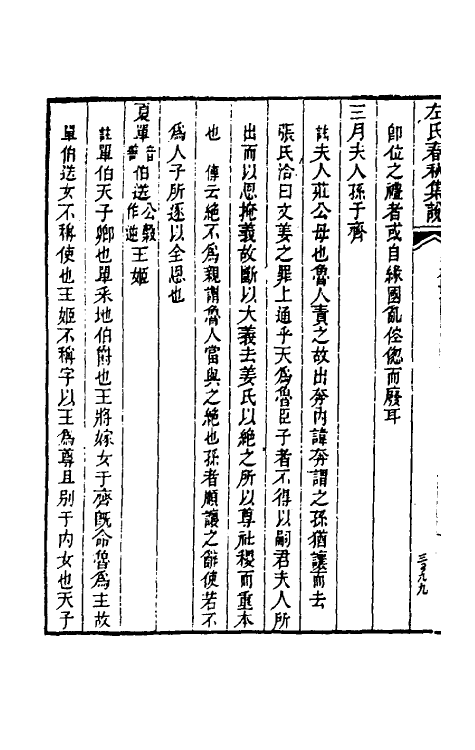 左氏春秋集說
卽位之禮者或自緣國亂倥傯而廢耳
三月夫人孫于齊
註夫人莊公母也魯人責之故出奔內諱奔謂之孫猶讓而去
張氏洽曰文姜之罪上通乎天爲魯臣子者不得以嗣君夫人所
出而以恩掩義故斷以大義去姜氏以絶之所以尊社稷而重本
也　傳云絶不爲親謂魯人當與之絶也孫者順讓之辭使若不
爲人子所逐以全恩也
夏單音善伯送公穀作逆王姬
註單伯天子卿也單采地伯爵也王將嫁女于齊旣命魯爲主故
單伯送女不稱使也王姬不稱字以王爲尊且别于內女也天子